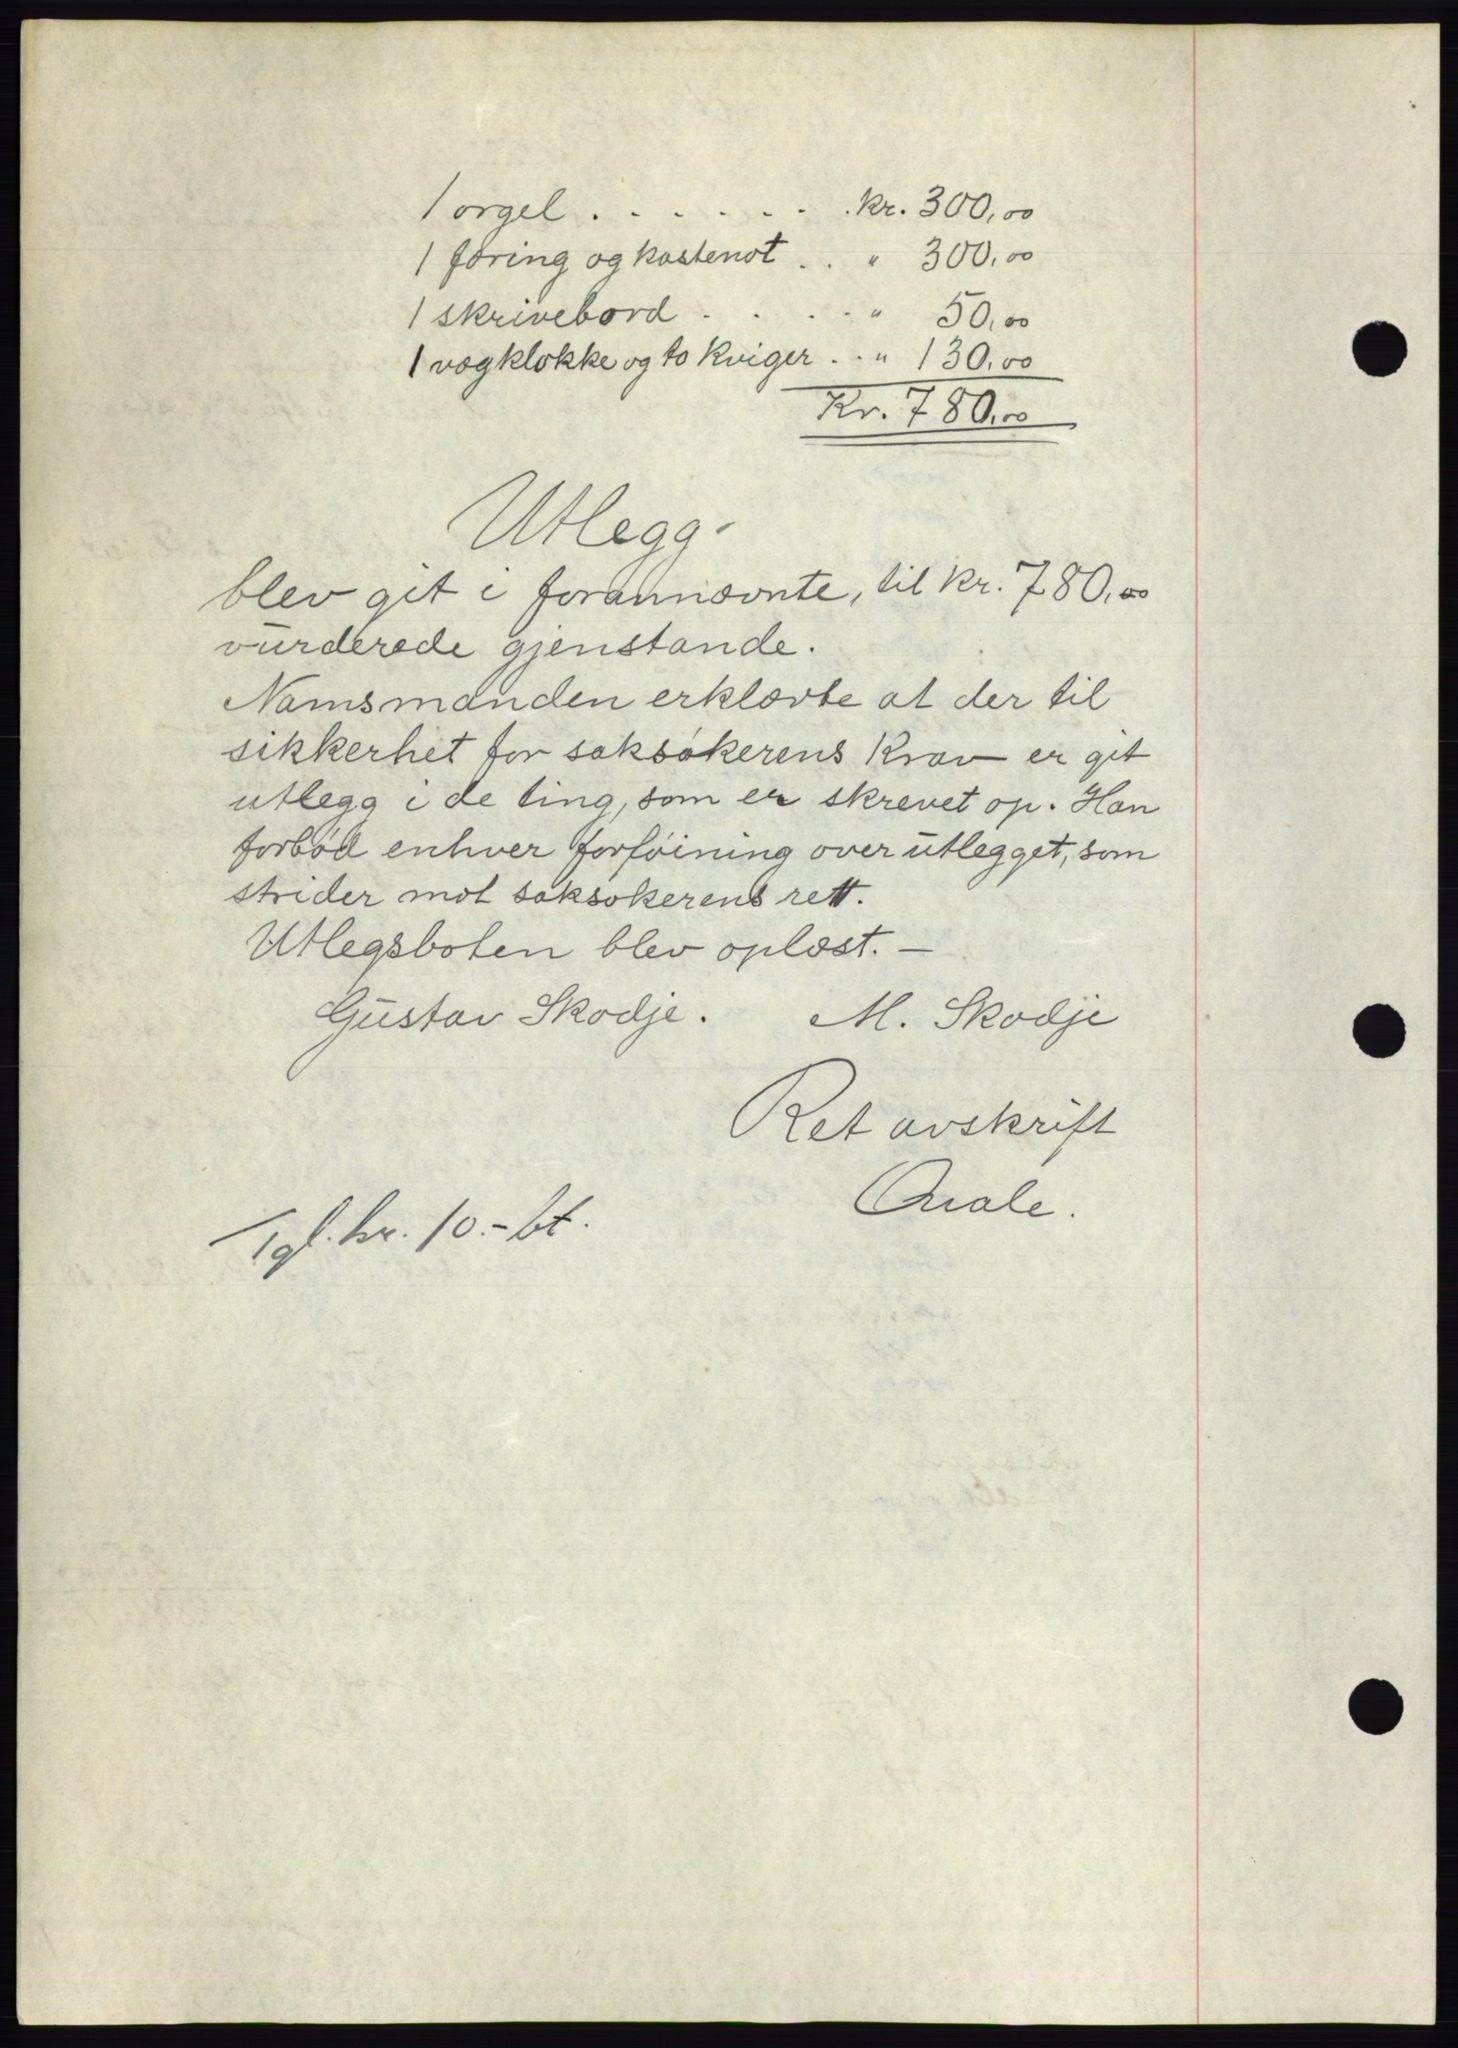 1 orgel . . . . . . . kr. 300,00
1 færing og kastenot . . " 300,00
1 skrivebord . . . . . " 50,00
1 vægklokke og to kviger . . " 130,00
Kr. 780,00
Utlegg
blev git i forannævnte, til kr. 780,00
vurderede gjenstande.
Namsmanden erklærte at der til
sikkerhet for saksøkerens krav er git
utlegg i de ting, som er skrevet op. Han
forbød enhver forføining over utlegget, som
strider mot saksøkerens rett.
Utlegsboken blev oplæst. —
Gustav Skodje. M. Skodje
Ret avskrift
Qvale.
Tgl. kr. 10.- bt.